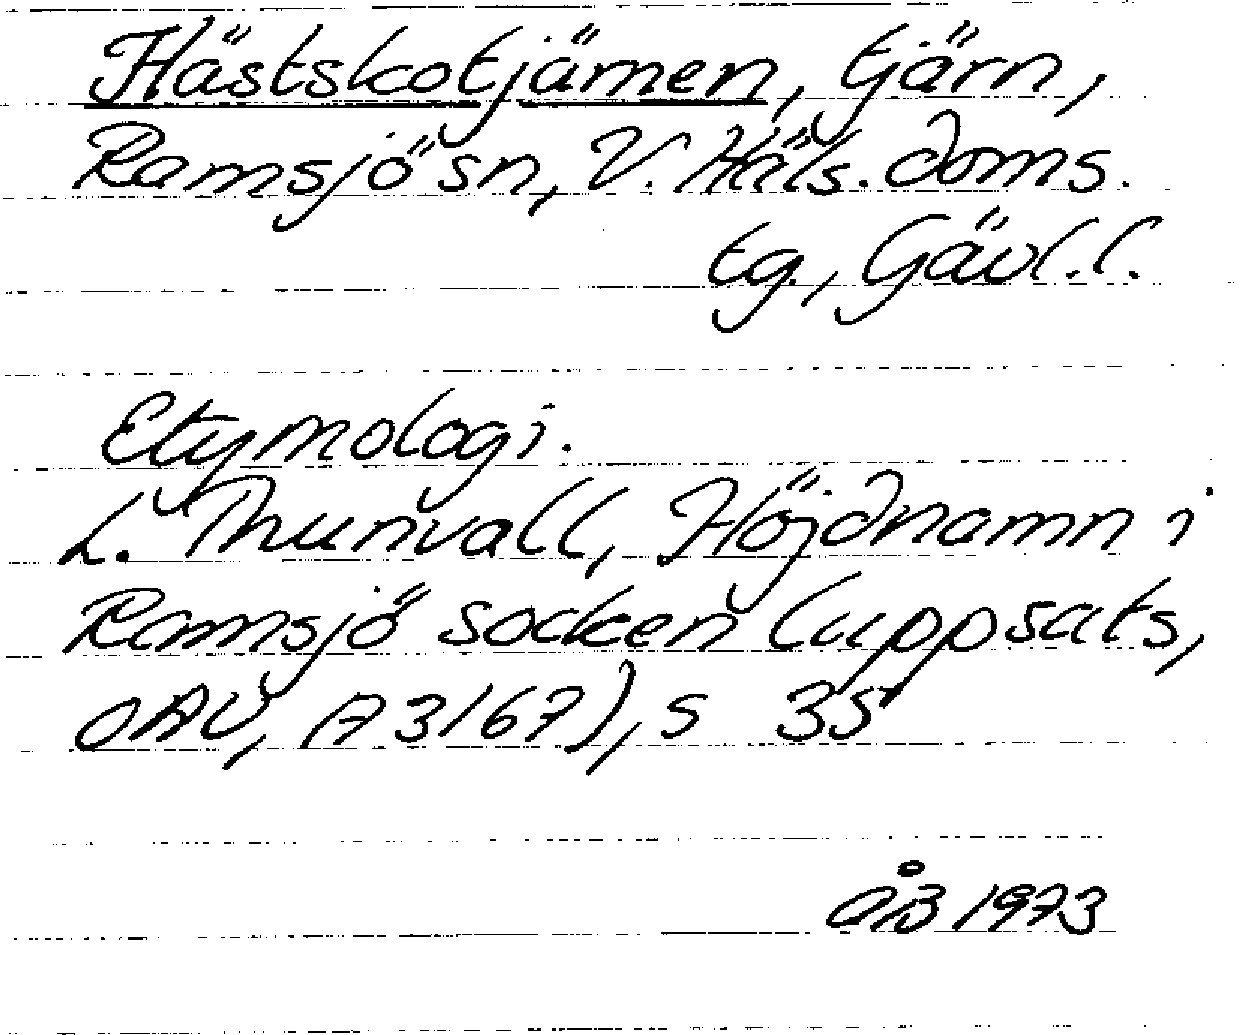 Hästskotjärnen, tjärn,
Ramsjö sn, V. Häls. doms.
tg., Gävl.l.
Etymologi.
L. Thunvall, Höjdnamn i
Ramsjö socken (uppsats,
OAU, A 3167), s 35
OÅB 1973